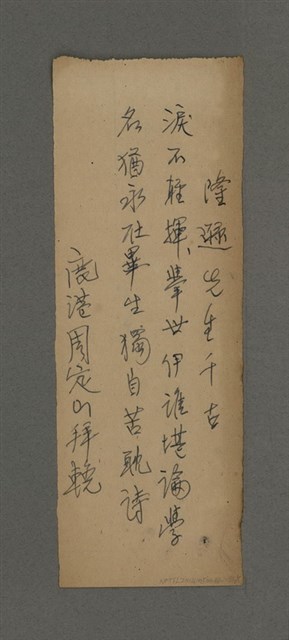 隆遜先生千古
淚不輕揮、舉世伊誰堪論學
名猶永在畢生獨自苦耽詩
鹿港周定山拜輓